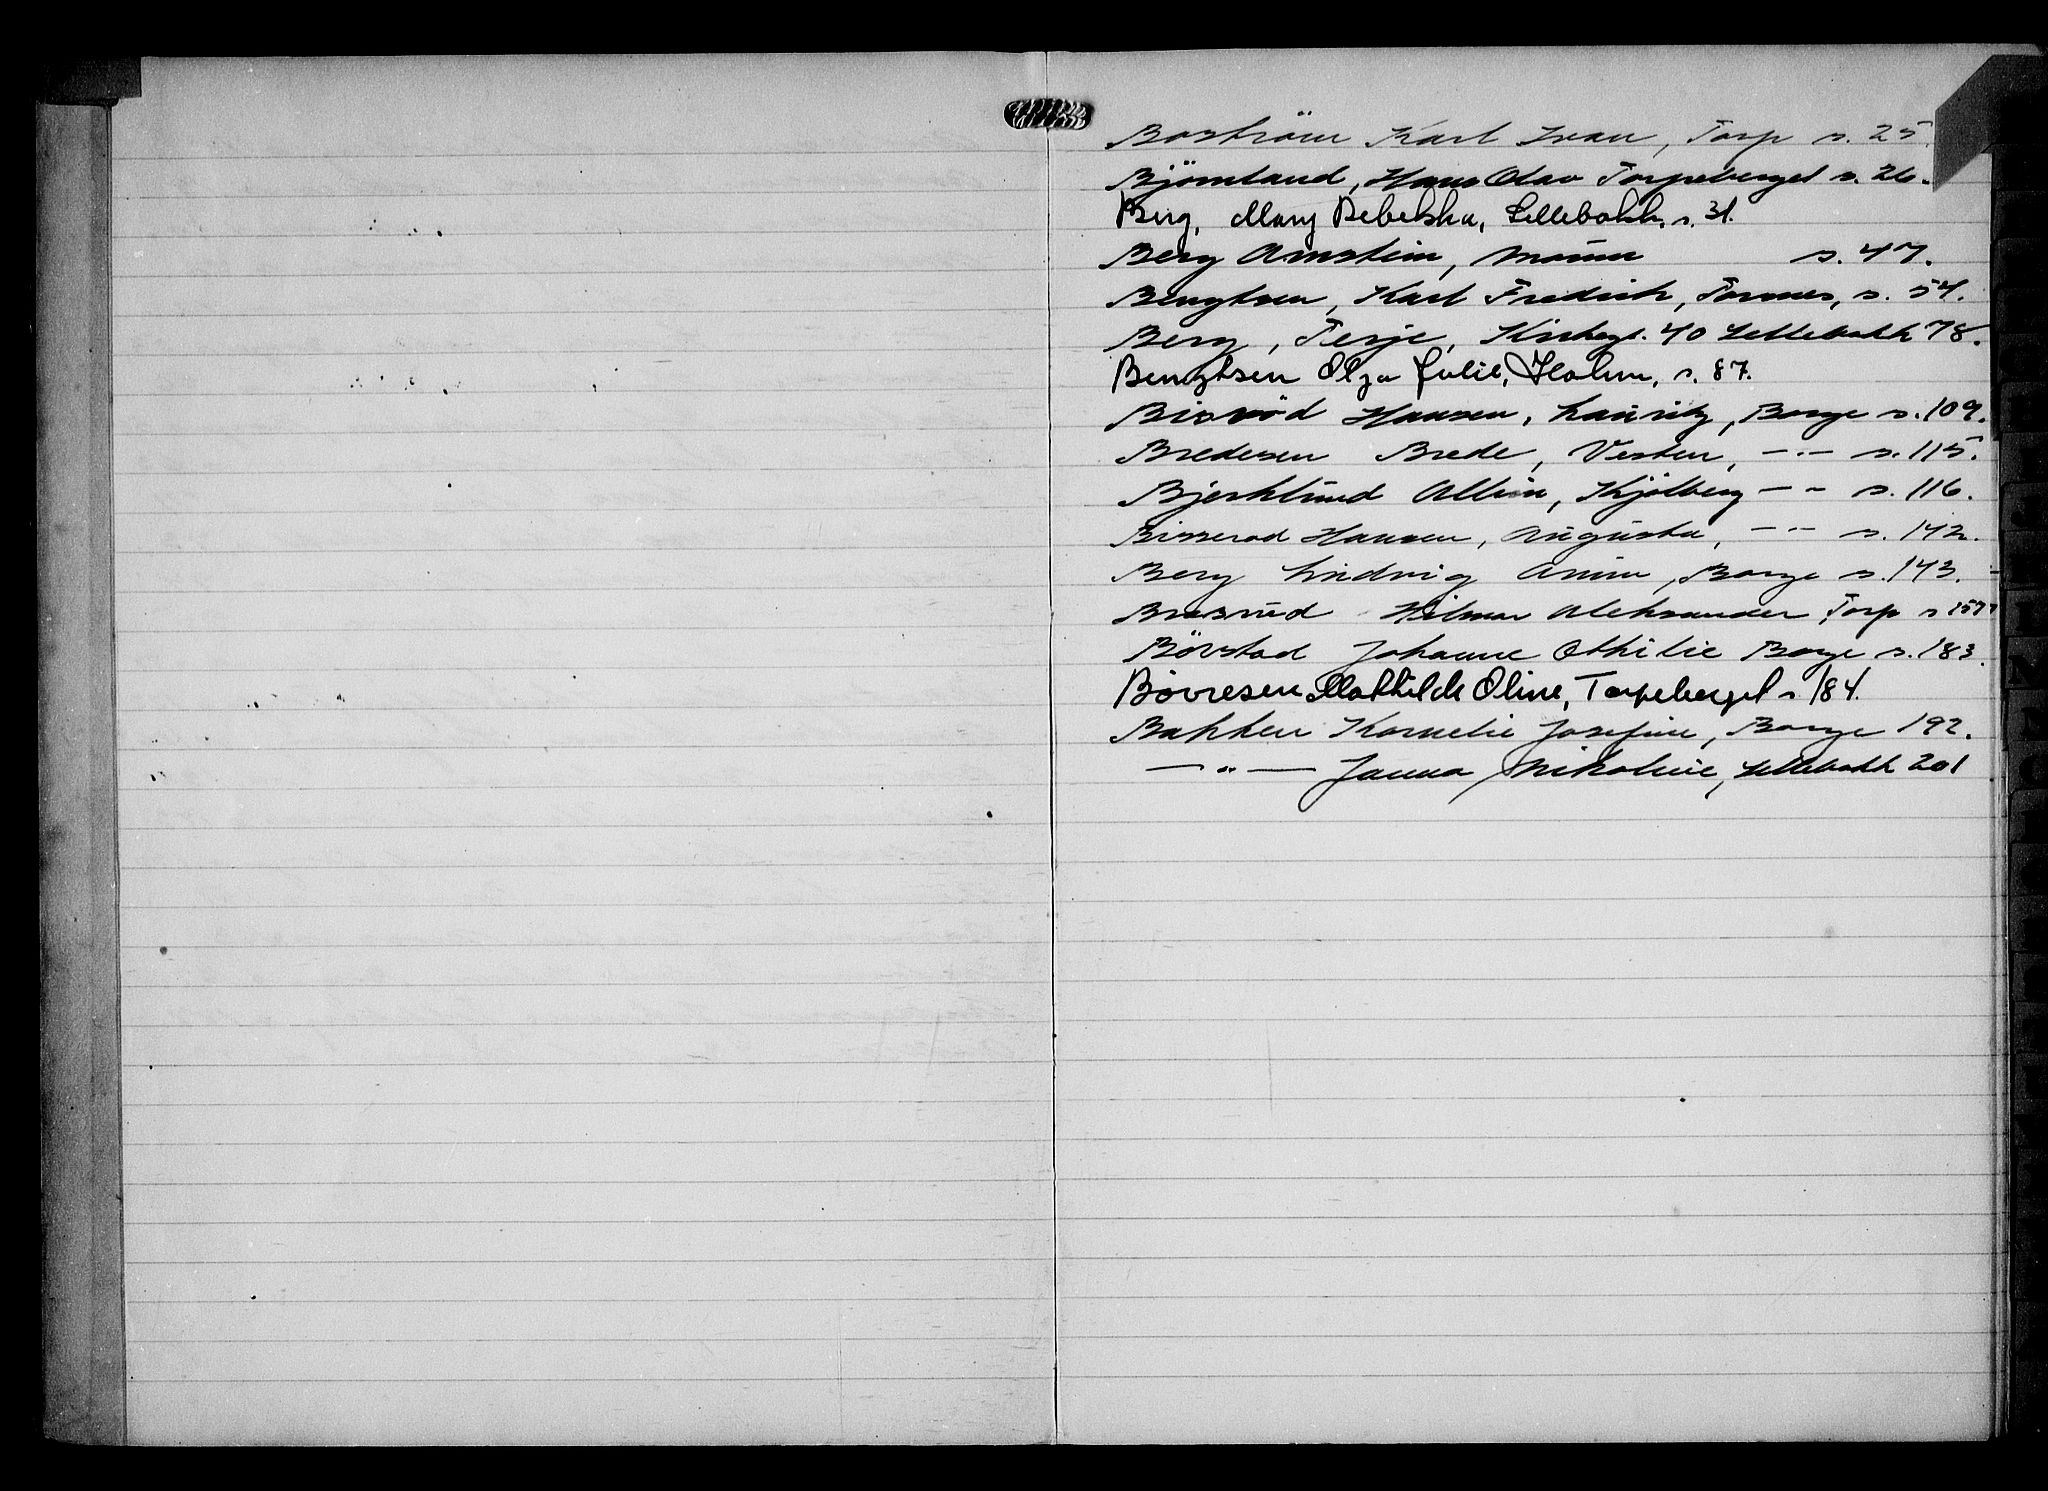 Boström Karl Ivan, Torp s. 25.
Björnland, Hans Olav Torpeberget s. 26.
Berg, Mary Rebekka, Sellebakk, s. 31.
Berg Arnstein, Moum s. 47.
Bengtsen, Karl Fredrik, Tomnes, s. 54.
Berg, Terje, Kirkegt. 40 Sellebakk 78.
Bengtsen Olga Julie, Holm, s. 87.
Bisröd Hansen, Lauritz, Borge s. 109.
Bredesen Brede, Vesten, -"- s. 115.
Bjerklund Allvin, Kjølberg -"- s. 116.
Bisserød Hansen, Augusta, -"- s. 142.
Berg Lindvig Anine, Borge s. 143.
Hilmar Aleksander, Torp s 157
Bövstad Johanne Othilie Borge s. 183.
Bövresen Mathilde Oline, Torpeberget s 184.
Bakken Kornelie Josefine, Borge 192.
-"- Janna Nikoline, Sellebakk 201